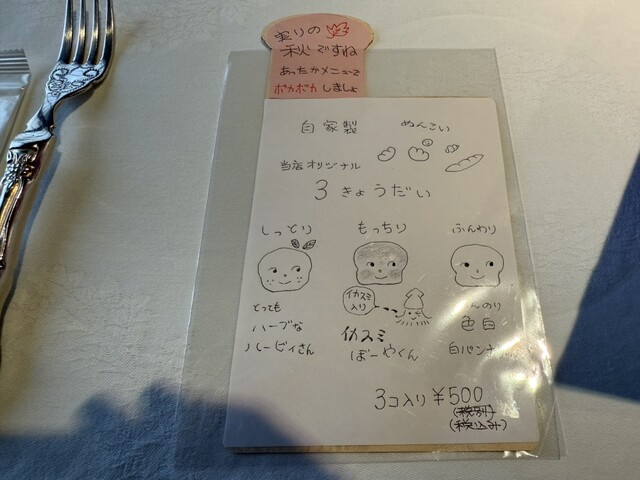 実りの
秋ですね
あったかメニューで
ポカポカしましょ
自家製 めんこい
当店オリジナル
3きょうだい
しっとり もっちり ふんわり
イカスミ
入り
とっても
ハーブな
ハービィさん
イカスミ
ぼーやくん
んのり
色白
白パン
3コ入り ¥500
(税別)
(税込み)